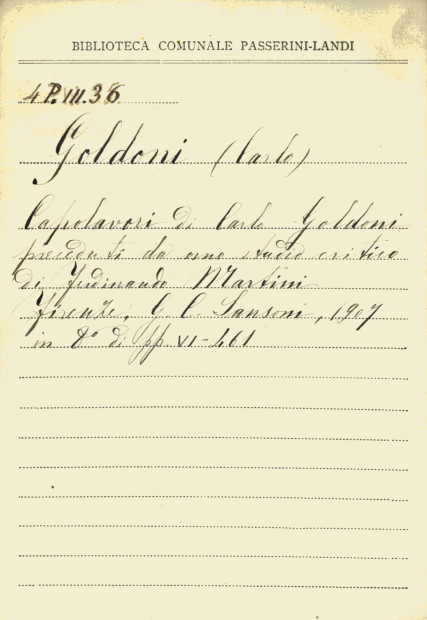 BIBLIOTECA COMUNALE PASSERINI-LANDI
4 P. III. 36
Goldoni (Carlo)
Capolavori di Carlo Goldoni
preceduti da uno studio critico
di Ferdinando Martini
Firenze, G. C. Sansoni, 1907
in 8° di pp. VI-461